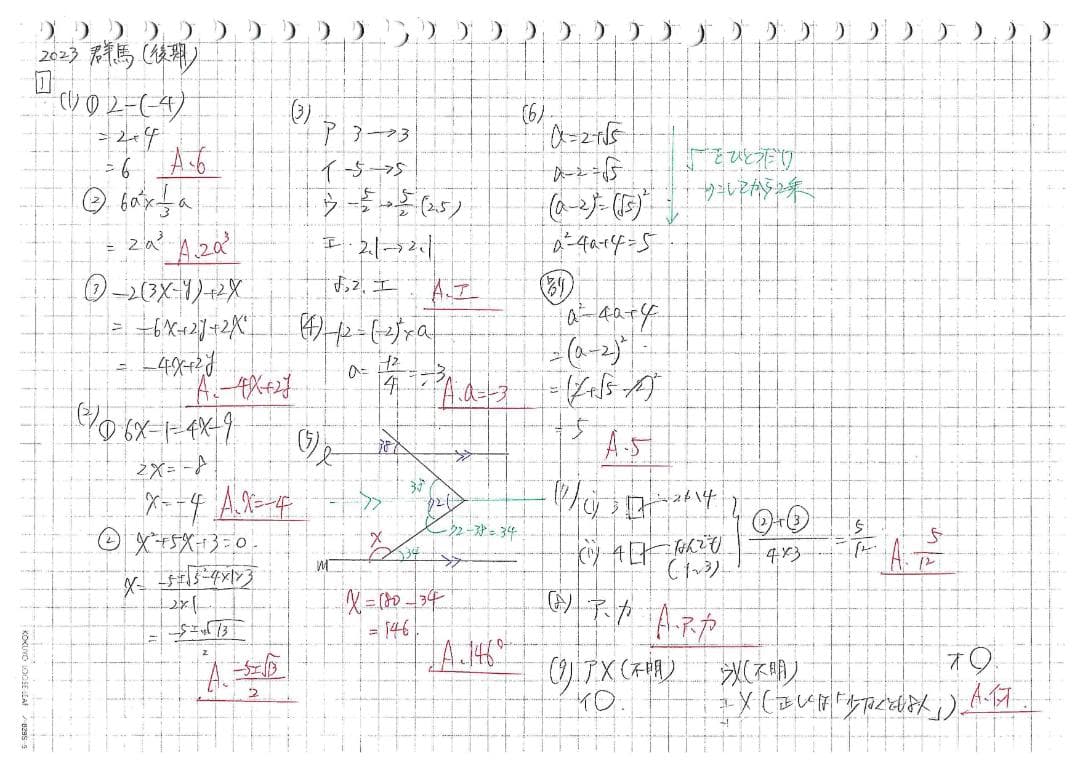 2023 群馬(後期)
1
(1) ① 2-(-4)
= 2+4
= 6 A.6
② 6a²×1/3 a
= 2a³ A.2a³
③ -2(3x-y)+2x
= -6x+2y+2x
= -4x+2y
A.-4x+2y
(2) ① 6x-1=4x-9
2x=-8
x=-4 A.x=-4
② x²+5x+3=0
x= -5±√5²-4×1×3 / 2×1
= -5±√13 / 2
A. -5±√13 / 2
(3)
ア 3→3
イ -5→5
ウ -5/2→5/2 (2.5)
エ 2.1→2.1
よって エ A.エ
(4) -12=(-2)²×a
a= -12/4 = -3
A.a=-3
(5) l
38
38
72
72-38=34
x
34
m
x=180-34
=146
A.146°
(6)
a=2+√5
a-2=√5
(a-2)²=(√5)²
a²-4a+4=5
√をひとつだけ
にしてから2乗
別
a²-4a+4
=(a-2)²
=(2+√5-2)²
= 5
A.5
(7) (i) 3□ 2か4
(ii) 4□ なんでも
(1~3)
②+③ / 4×3 = 5/12 A. 5/12
(8) ア、カ A.ア、カ
(9) ア×(不明)
イ○
ウ×(不明)
エ×(正しくは「少なくとも8人」)
オ○
A.イオ
KOKUYO LOOSE-LEAF